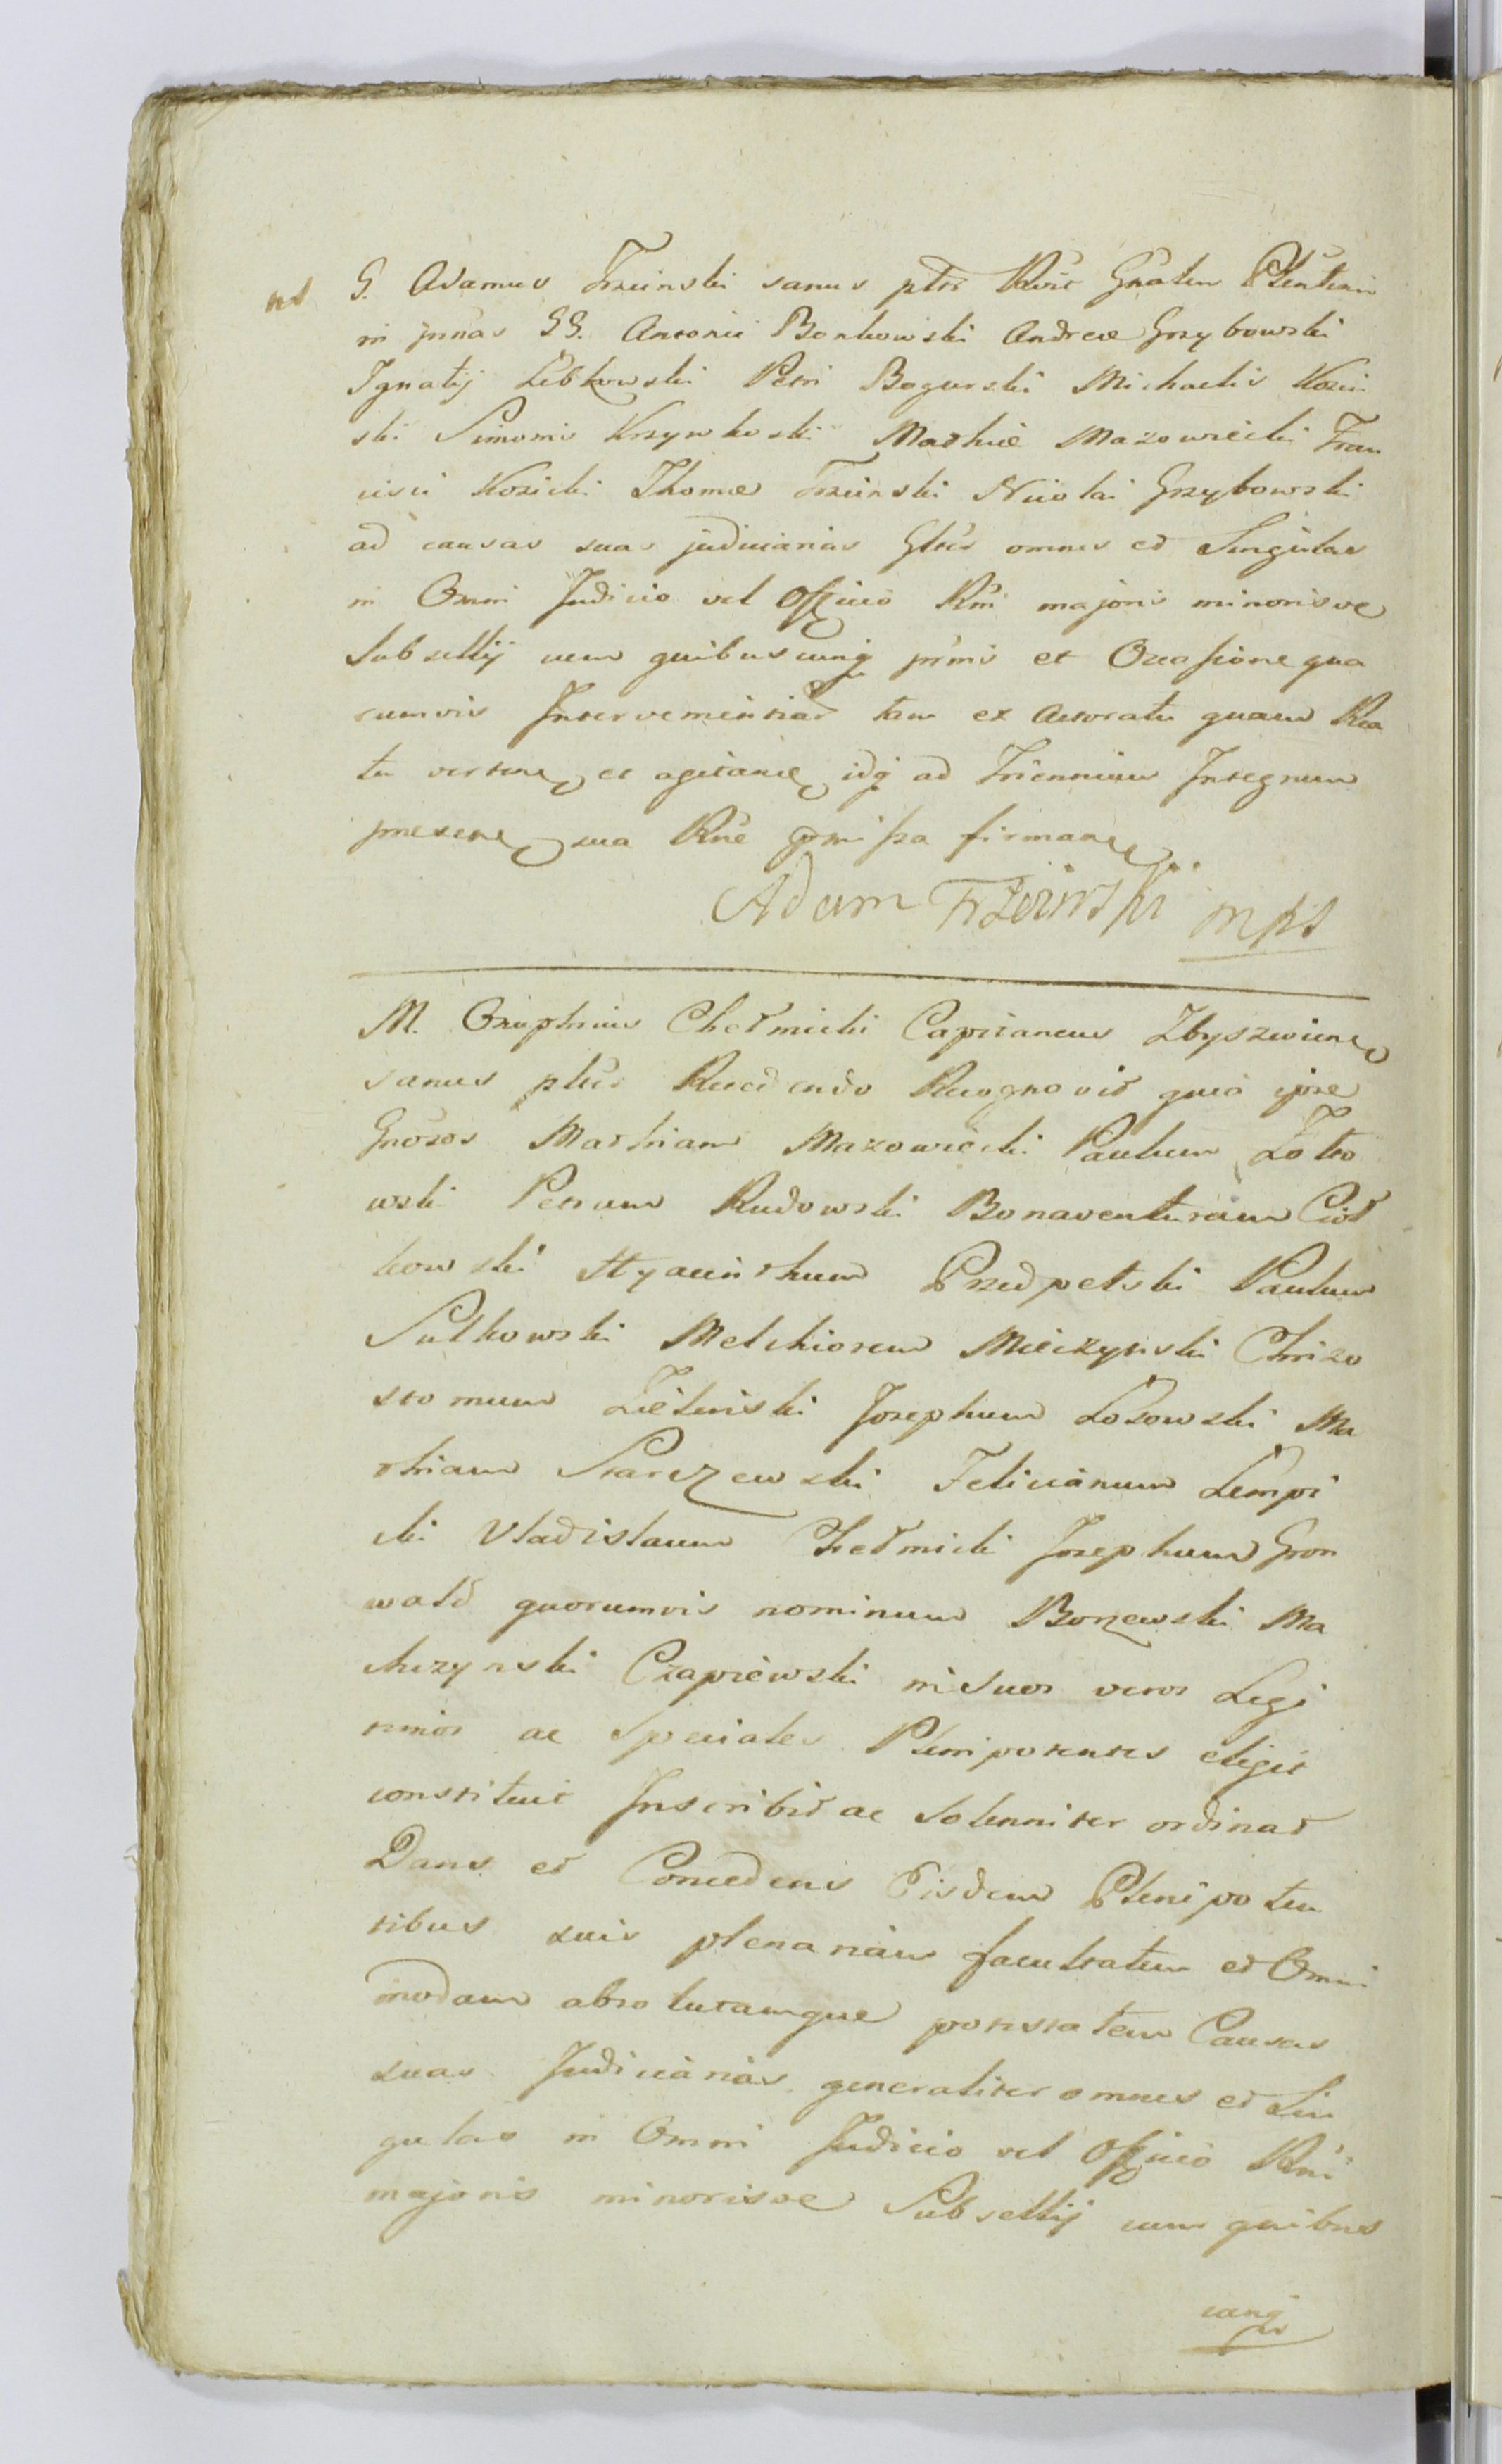 G. Adamus Trzcinski sanus pltr Rvit Gnalem Plentem
in prnas GG. Antonii Bonkowski Andreæ Grzybowski
Ignatij Lebkowski Petri Bogurski Michaelis Kozic
ski Simonis Krzywkoski Mathiæ Mazowiecki Fran
cisci Kosicki Thomæ Trzcinski Nicolai Grzybowski
ad causas suas judiciarias Gltr omnes et Singulas
in Omni Judicio vel Officio Rni majoris minorisve
Subsellij cum quibuscunq prnis et Occasione qua
rumvis Intervenientiar tam ex Actoratu quam Rea
tu verten et agitan idq ad Triennium Integrum
presen sua Rne pmissa firman
Adam Trzciński mpp
M. Onuphrius Chełmicki Capitaneus Zbyszewien
sanus pltr Recedendo Recognovit quia ipse
Gnosos Mathiam Mazowiecki Paulum Zoto
wski Petrum Rudowski Bonaventuram Cioł
kowski Hyacinthum Przedpełski Paulum
Sulkowski Melchiorem Mieczynski Chrizo
stomum Zielinski Josephum Łosowski Ma
thiam Starczewski Felicianum Lempi
cki Vladislaum Chełmicki Josephum Gron
wald quorumvis nominum Borzewski Ma
chczynski Czapiewski in Suos veros Legi
timos ac Speciales Plenipotentes eligit
constituit Inscribit ac Solenniter ordinat
Dans et Concedens Eisdem Plenipoten
tibus suis plenariam facultatem et Omni
modam absolutamque potestatem Causas
suas Judiciarias generaliter omnes et Sin
gulas in Omni Judicio vel Officio Rni
majoris minorisve Subsellij cum quibus
cunq